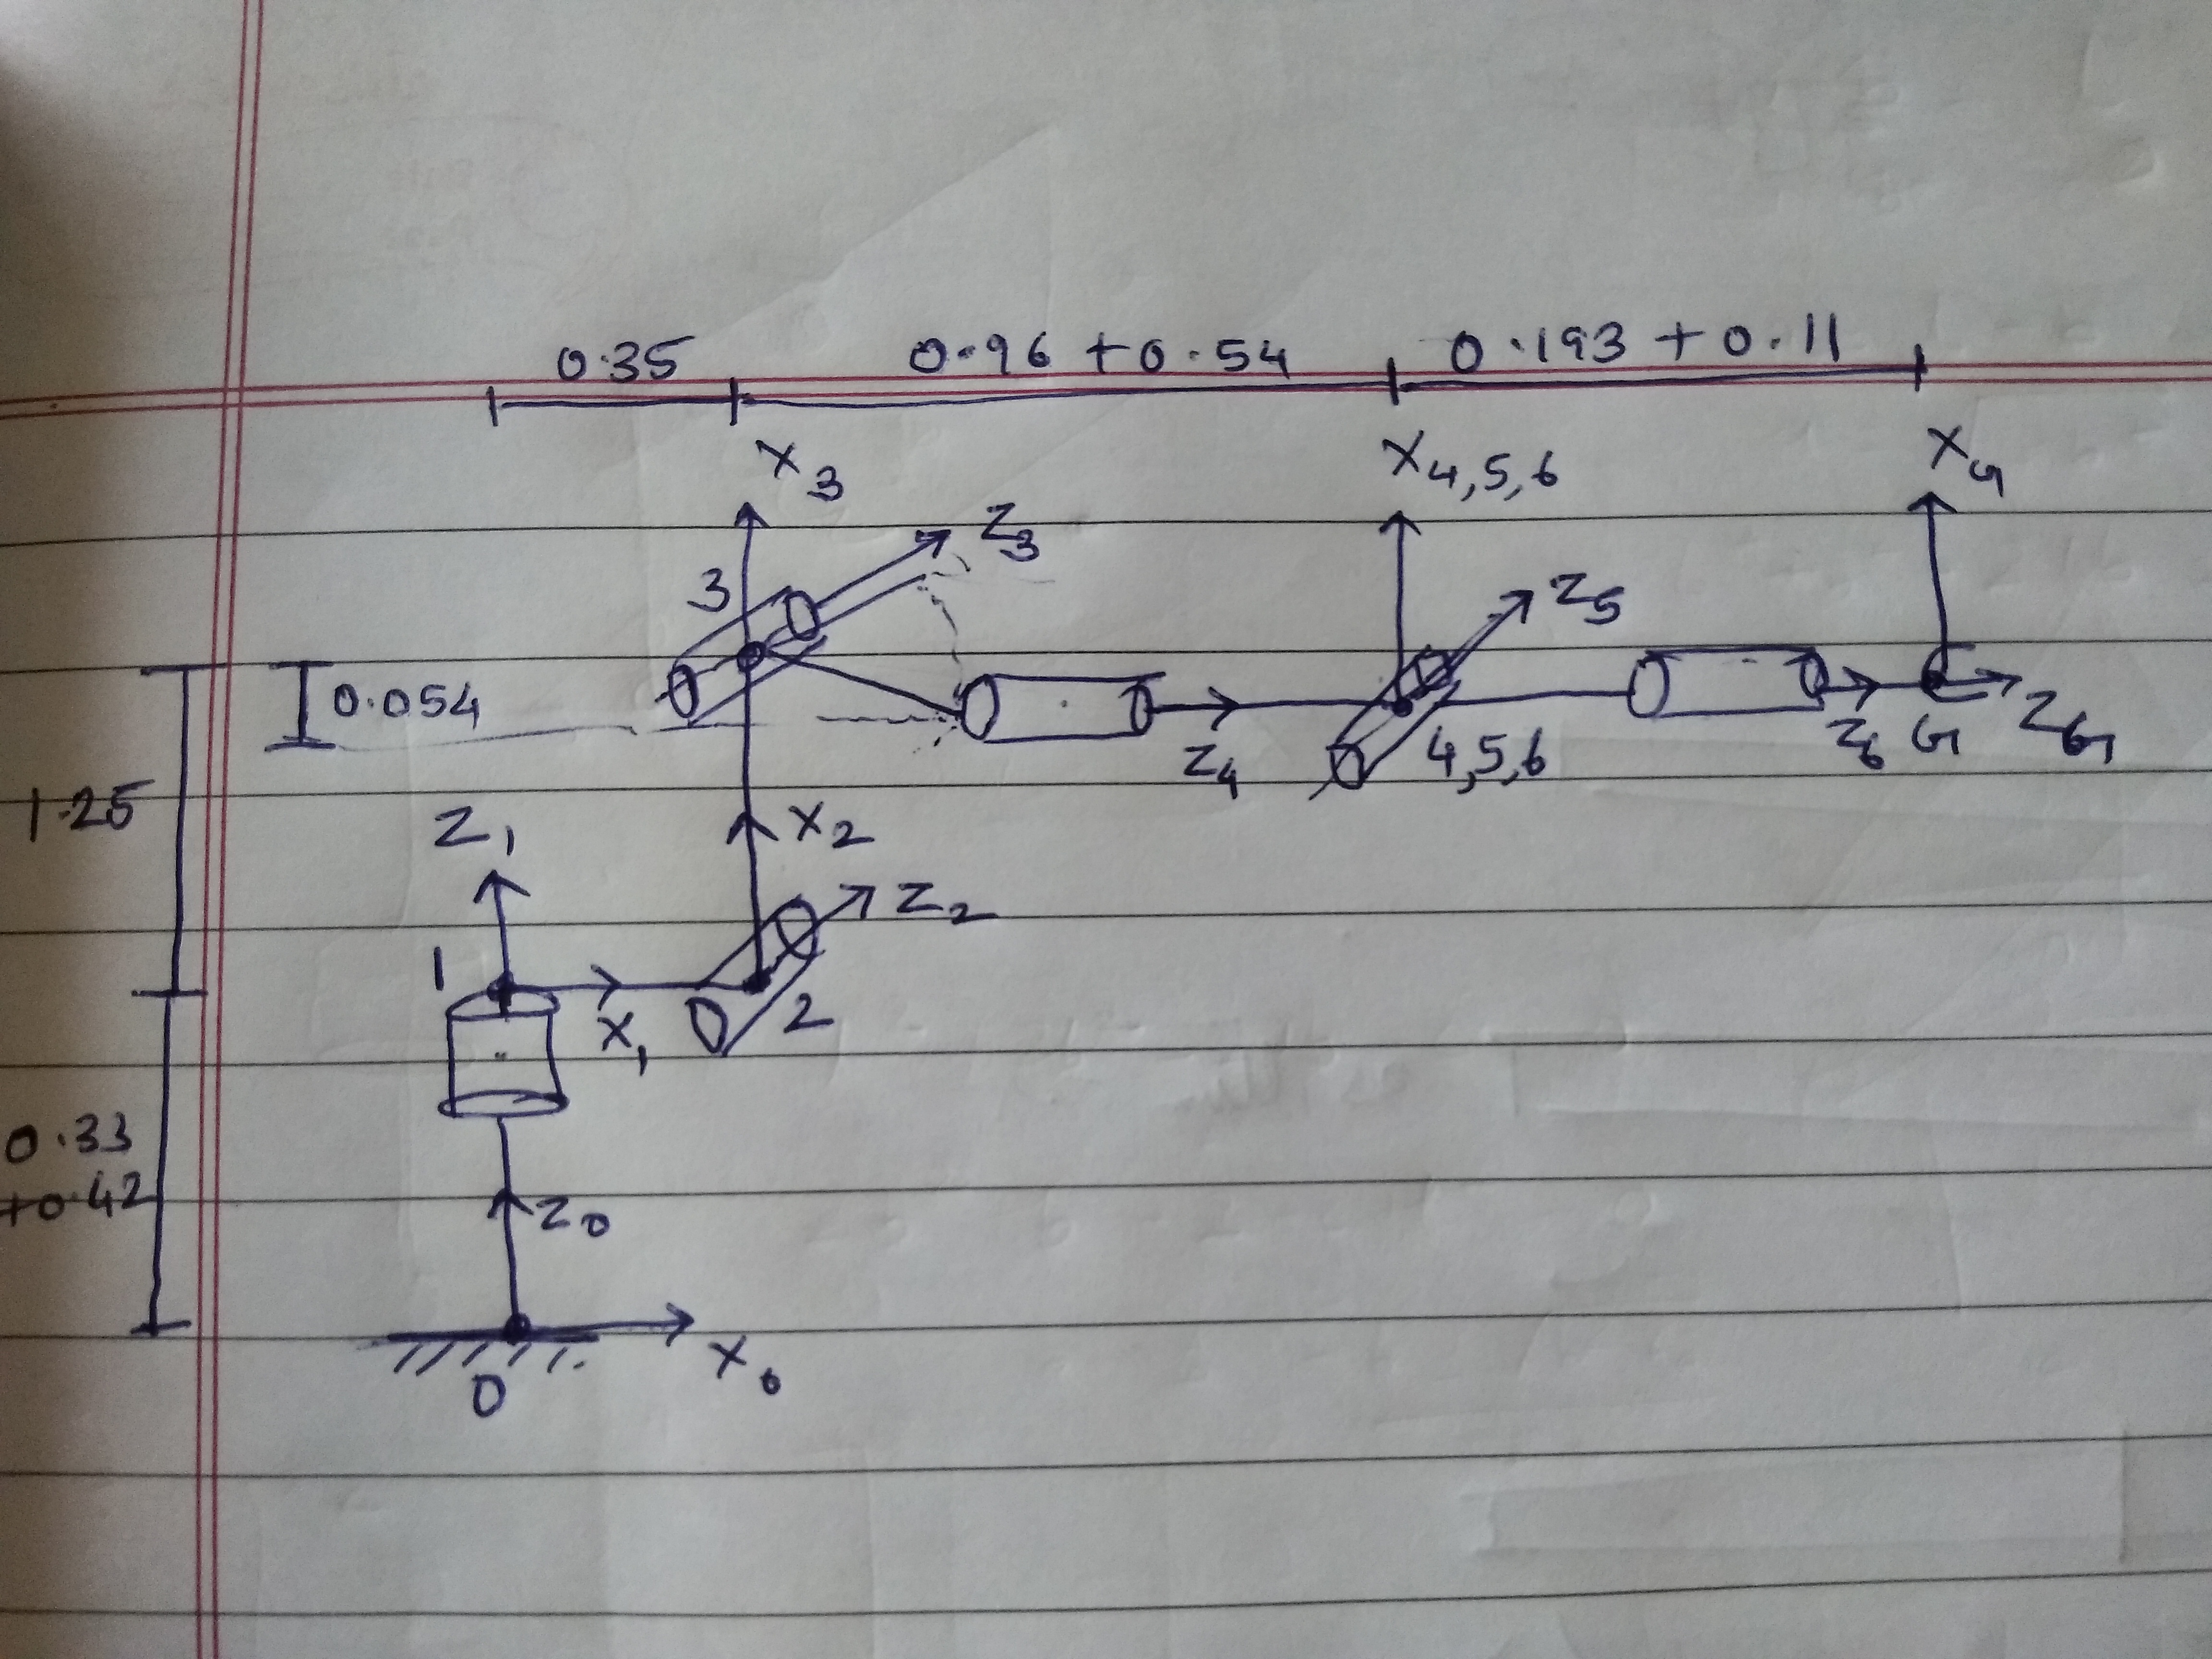 0.35 0.96 + 0.54 0.193 + 0.11
X3 X4,5,6 XG
Z3
3 Z5
0.054
Z4 4,5,6 Z6 G ZG
1.25
Z1 X2
Z2
1
X1 2
0.33
+0.42 Z0
X0
0